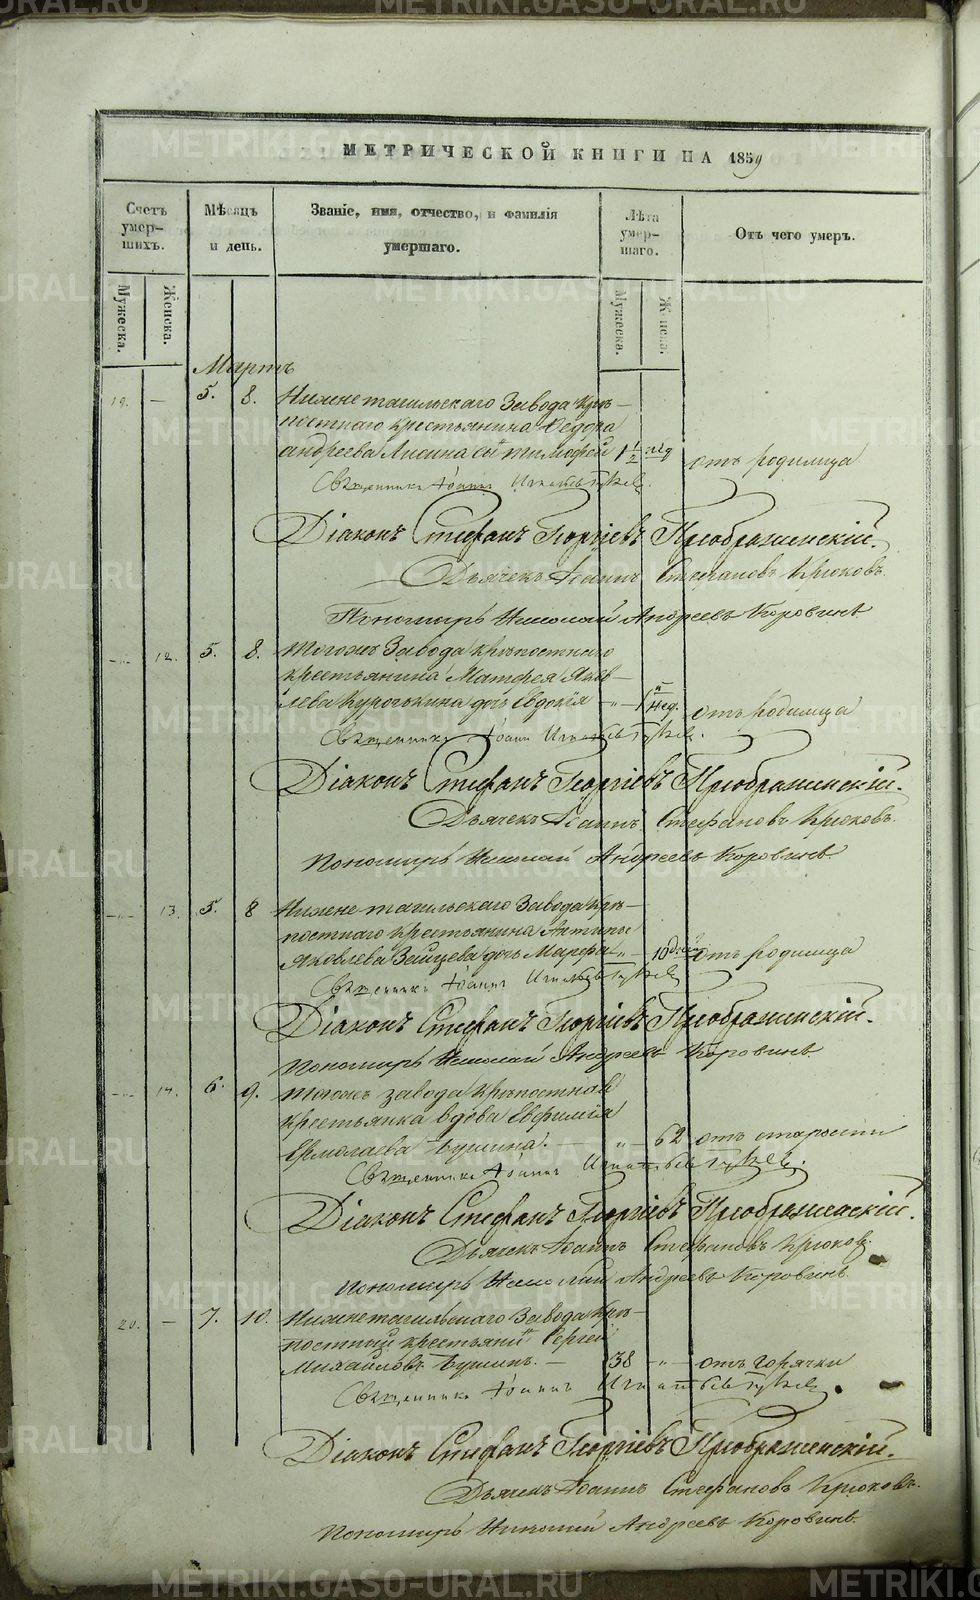 METRIKI.GASO-URAL.RU
МЕТРИЧЕСКОЙ КНИГИ НА 1859
Счетъ умер-шихъ.
Мѣсяцъ и день.
Званіе, имя, отчество, и фамилія умершаго.
Лѣта умер-шаго.
Отъ чего умеръ.
Мужеска.
Женска.
Мужеска.
Женска.
Мартъ
19. — 5. 8. Нижнетагильскаго Завода крѣ-
постнаго крестьянина Ѳедора
Андреева Лисина сынъ Тимофей 1 1/2 нед отъ родимца
Священникъ Іоаннъ Игнатьевъ
Діаконъ Стефанъ Георгіевъ Преображенскій.
Дьячекъ Іоаннъ Стефановъ Крюковъ.
Пономарь Николай Андреевъ Коровинъ
12. 5. 8. Тогожъ Завода крѣпостнаго
крестьянина Матфея Яков-
лева дочь Евдокія „ — нед. отъ родимца
Священникъ Іоаннъ Игнатьевъ
Діаконъ Стефанъ Георгіевъ Преображенскій.
Дьячекъ Іоаннъ Стефановъ Крюковъ.
Пономарь Николай Андреевъ Коровинъ
13. 5. 8 Нижнетагильскаго Завода крѣ-
постнаго крестьянина Антипы
Яковлева Зайцева дочь Марфа „ — 10 дней отъ родимца
Священникъ Іоаннъ Игнатьевъ
Діаконъ Стефанъ Георгіевъ Преображенскій.
Пономарь Николай Андреевъ Коровинъ
14. 6. 9. Тогожъ завода крѣпостная
крестьянка вдова Евфимія
Ермолаева — „ — 62 отъ старости
Священникъ Іоаннъ Игнатьевъ
Діаконъ Стефанъ Георгіевъ Преображенскій.
Дьячекъ Іоаннъ Стефановъ Крюковъ.
Пономарь Николай Андреевъ Коровинъ.
20. — 7. 10. Нижнетагильскаго Завода крѣ-
постный крестьянинъ Сергей
Михайловъ — 38 „ — отъ горячки
Священникъ Іоаннъ Игнатьевъ
Діаконъ Стефанъ Георгіевъ Преображенскій.
Дьячекъ Іоаннъ Стефановъ Крюковъ.
Пономарь Николай Андреевъ Коровинъ.